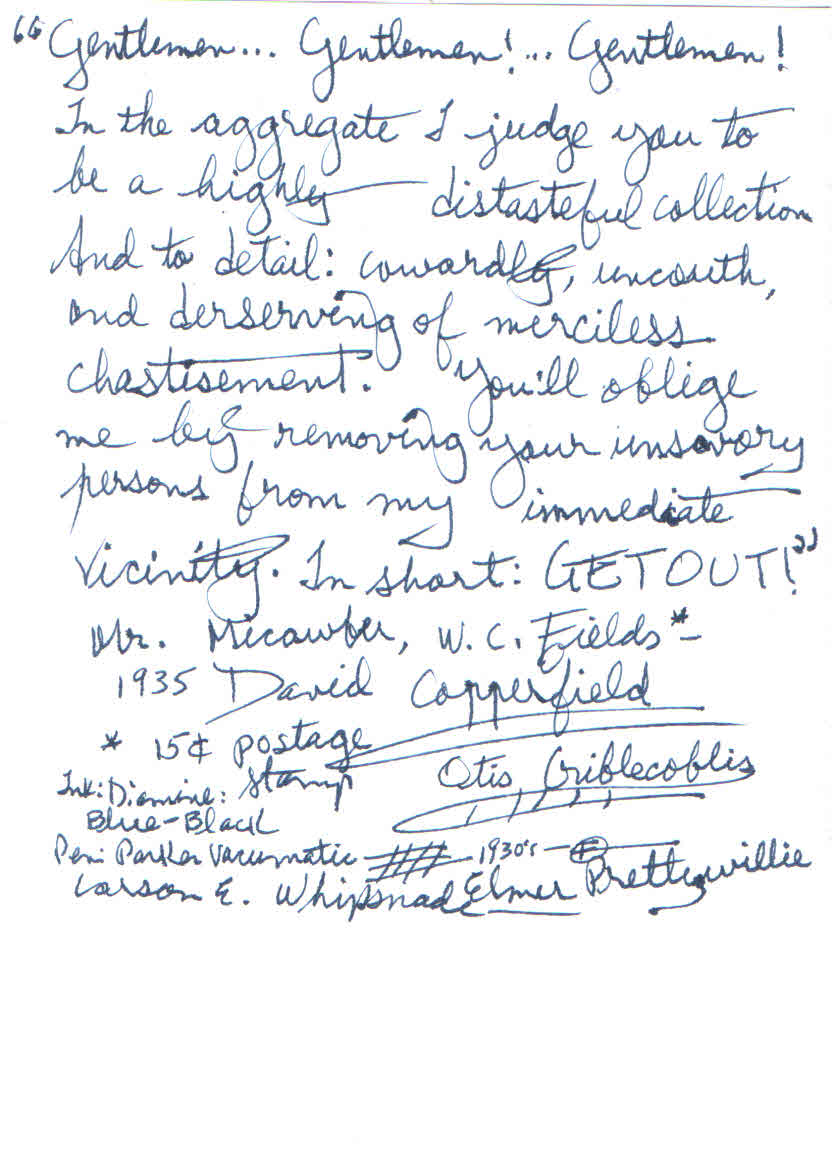 "Gentlemen... Gentlemen!... Gentlemen!
In the aggregate I judge you to
be a highly distasteful collection
And to detail: cowardly, uncouth,
and derserving of merciless
chastisement. You'll oblige
me by removing your unsavory
persons from my immediate
vicinity. In short: GET OUT!"
Mr. Micawber, W.C. Fields*-
1935 David Copperfield
* 15¢ postage
stamp
Otis Criblecoblis
Ink: Diamine:
Blue-Black
Pen: Parker Vacumatic 1930's
Larson E. Whipsnade Elmer Prettywillie